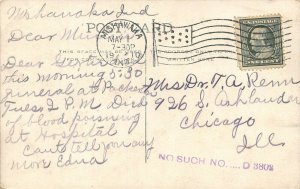 Mishawaka Ind
Dear Mil
POST CARD
MISHAWAKA
MAY 1
7-30P
IND.
THIS SPACE
Dear
this morning 5:30
funeral at
Tues 2 P.M. Died
of blood poisoning
at Hospital
Cant tell you any
more Edna
Mrs Dr. F. A. Renn
926 S. Ashland av
Chicago
Ill
NO SUCH NO. .... D 3802